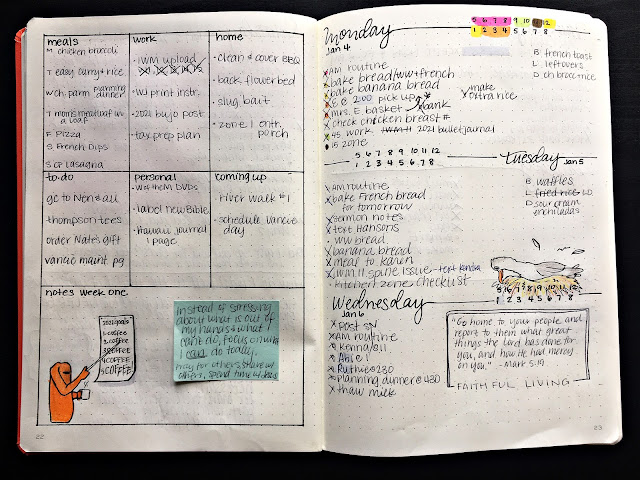 meals
M chicken broccoli
T easy curry + rice
W ch. parm planning dinner
T mom's meatloaf in a loaf
F Pizza
S French Dips
S CP Lasagna
work
· IWM upload
· WJ print instr.
· 2021 bujo post
· tax prep plan
home
· clean & cover BBQ
· back flowerbed
· slug bait
· zone 1 entr. porch
to do
go to Nen & all
thompson tees
order Nate's gift
vancie maint pg
personal
· label new Bible
· Hawaii journal
1 page
coming up
· river walk #1
· schedule vancie
day
notes week one
2021 goals
1. coffee
2. coffee
3. COFFEE
4. COFFEE
5. COFFEE
instead of stressing
about what is out of
my hands & what I
can't do, focus on what
I can do today.
pray for others, share w/
others, spend time w/
22
Monday
Jan 4
5 6 7 8 9 10 11 12
1 2 3 4 5 6 7 8
B french toast
L leftovers
D ch broc + rice
x AM routine
x bake bread/ww + french
x make
extra rice
x bake banana bread
x E @ 2:00 pick up
x bank
x Mrs. E basket
x check chicken breast #
x 45 work IWM 11 2021 bullet journal
15 zone
5 6 7 8 9 10 11 12
1 2 3 4 5 6 7 8
Tuesday Jan 5
B waffles
L fried rice LO
D sour cream
enchiladas
x AM routine
x bake French bread
for tomorrow
x sermon notes
x text Hansons
· ww bread
x banana bread
x meal to Karen
x IWM 11 spine issue - text Kendra
· kitchen zone checklist
5 6 7 8 9 10 11 12
1 2 3 4 5 6 7 8
Wednesday
Jan 6
x post SN
x AM routine
x Kenna/811
x Able 1
x Ruthie @ 230
x planning dinner @ 430
x thaw milk
"Go home to your people and
report to them what great
things the Lord has done for
you, and how He had mercy
on you." - Mark 5:19
FAITHFUL LIVING
23